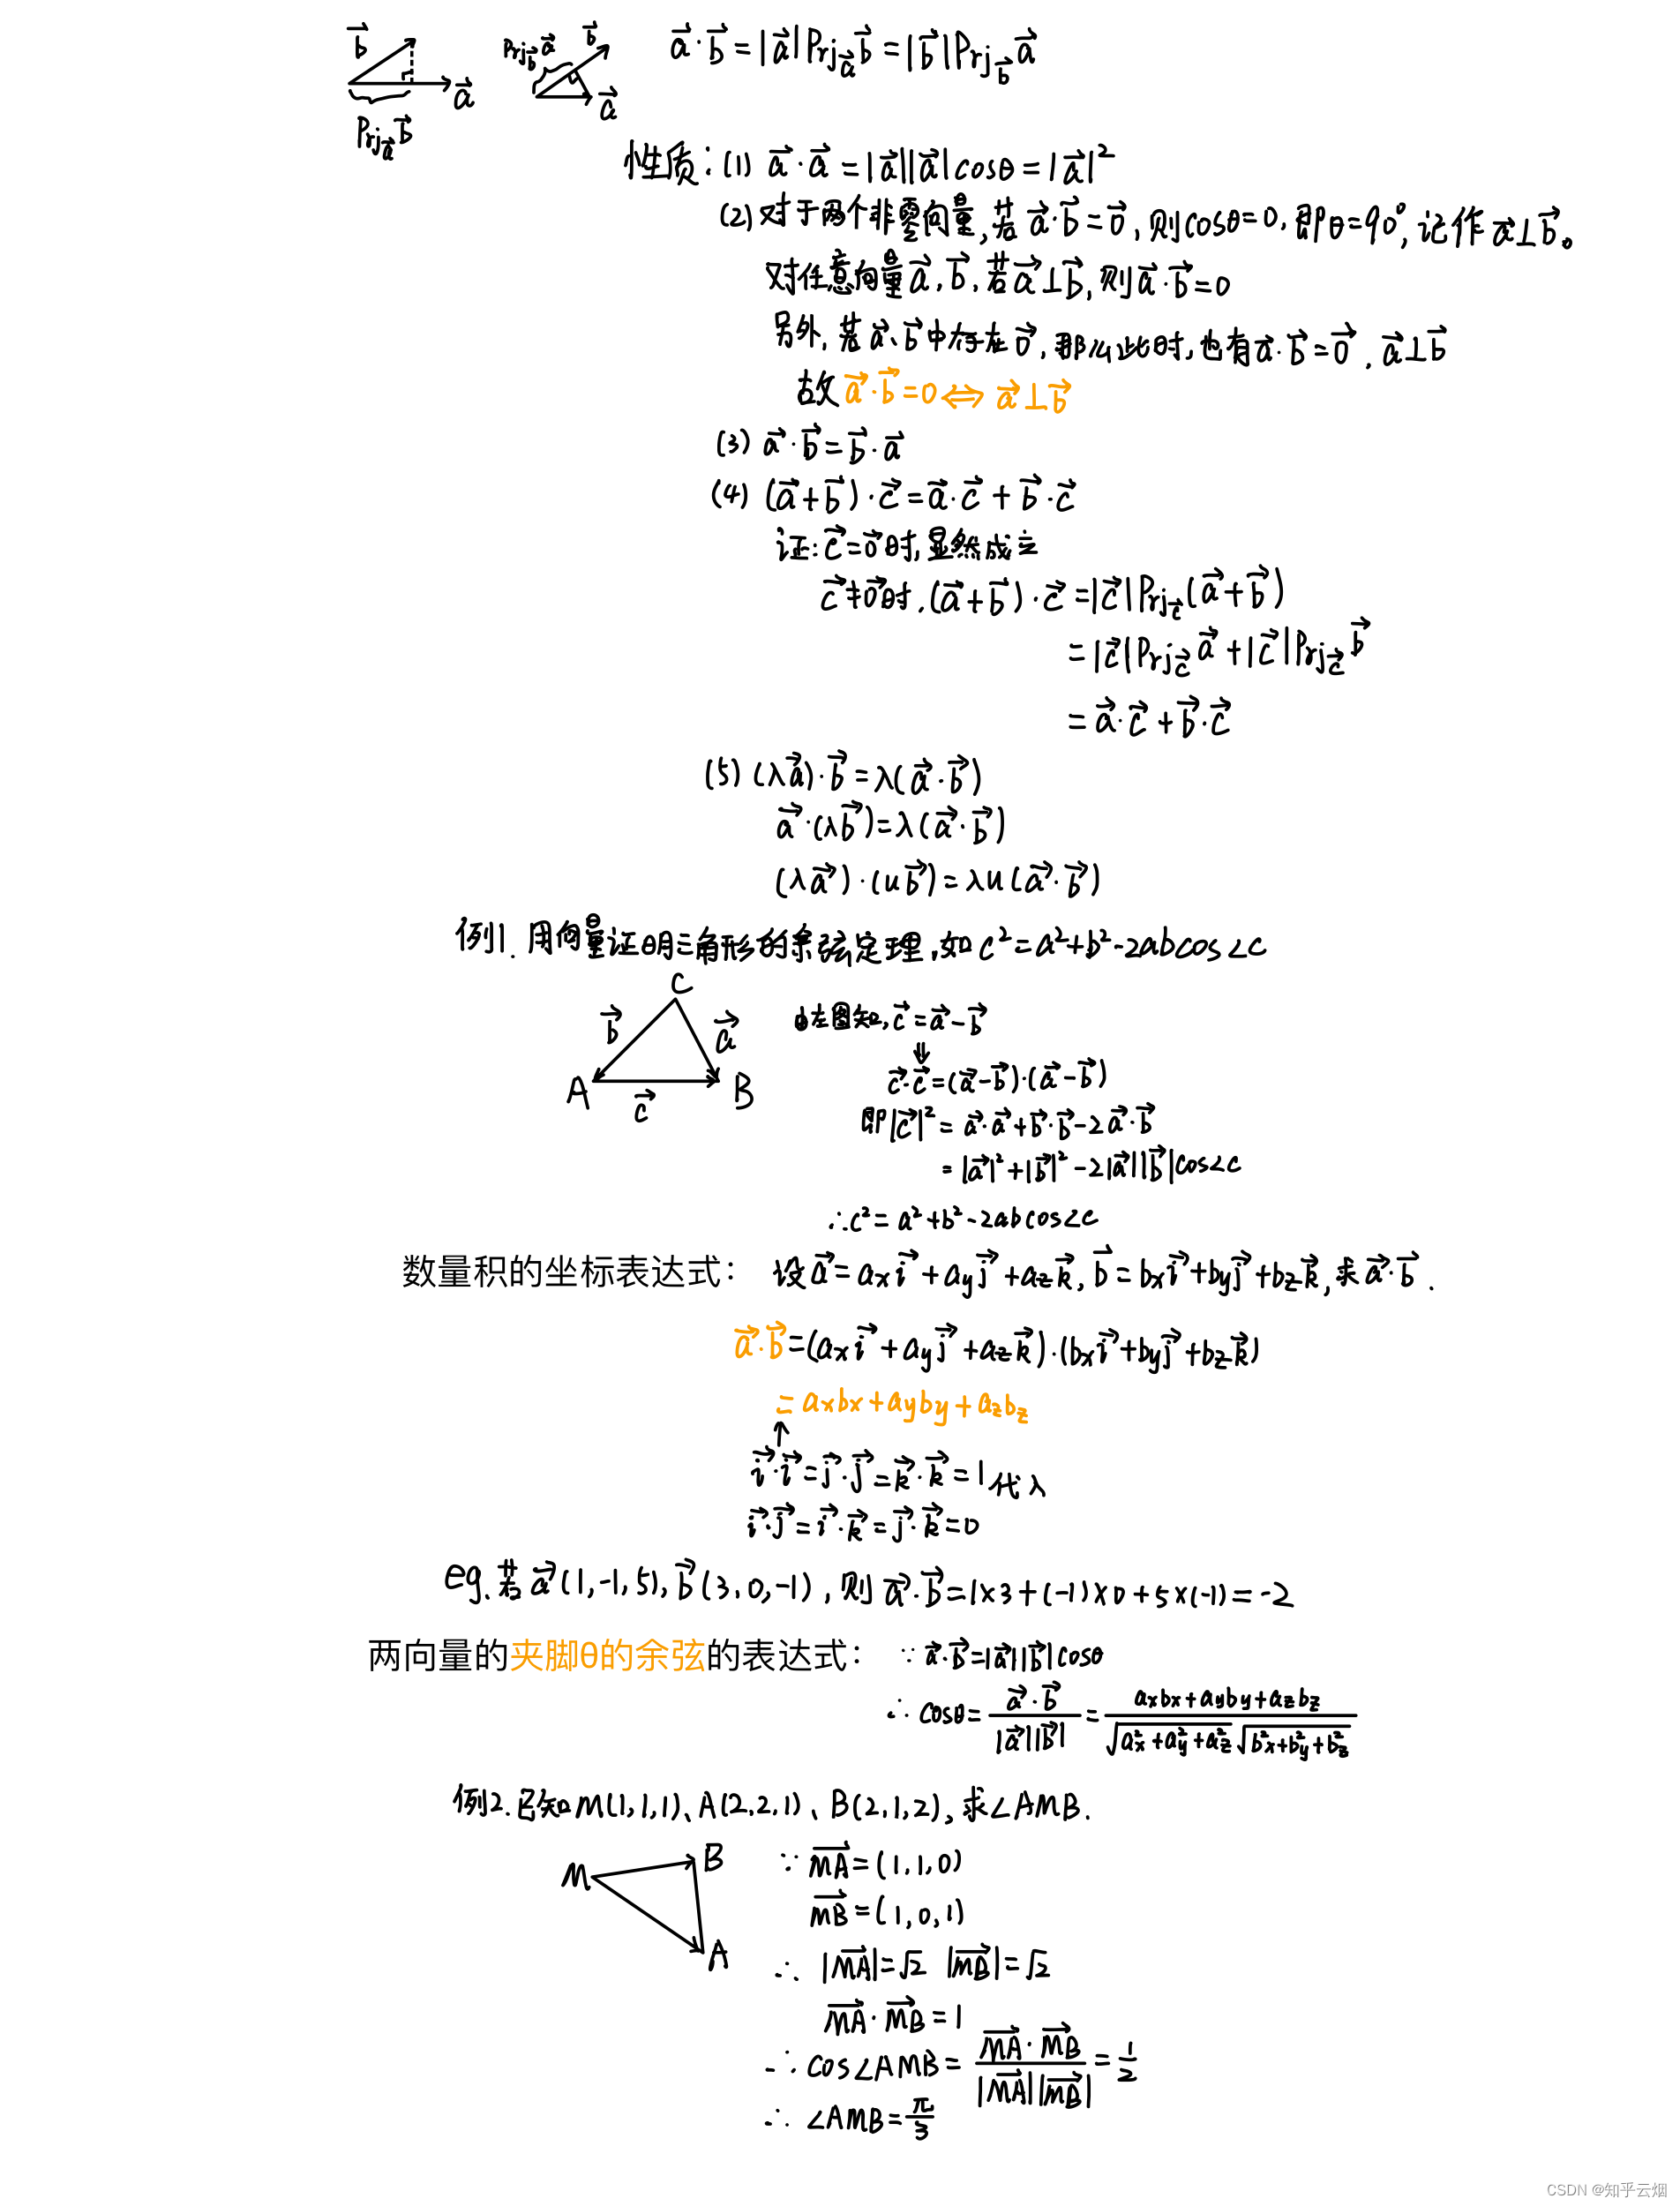 b⃗ a⃗ Prj_a⃗ b⃗
Prj_b⃗ a⃗ b⃗ a⃗
a⃗·b⃗=|a⃗|Prj_a⃗ b⃗=|b⃗|Prj_b⃗ a⃗
性质:(1) a⃗·a⃗=|a⃗||a⃗|cosθ=|a⃗|²
(2)对于两个非零向量,若a⃗·b⃗=0⃗,则cosθ=0,即θ=90°,记作a⃗⊥b⃗。
对任意向量a⃗,b⃗,若a⃗⊥b⃗,则a⃗·b⃗=0
另外,若a⃗、b⃗中存在0⃗,那么此时,也有a⃗·b⃗=0⃗,a⃗⊥b⃗
故a⃗·b⃗=0⟺a⃗⊥b⃗
(3) a⃗·b⃗=b⃗·a⃗
(4) (a⃗+b⃗)·c⃗=a⃗·c⃗+b⃗·c⃗
证:c⃗=0⃗时,显然成立
c⃗≠0⃗时,(a⃗+b⃗)·c⃗=|c⃗|Prj_c⃗(a⃗+b⃗)
=|c⃗|Prj_c⃗ a⃗+|c⃗|Prj_c⃗ b⃗
=a⃗·c⃗+b⃗·c⃗
(5) (λa⃗)·b⃗=λ(a⃗·b⃗)
a⃗·(λb⃗)=λ(a⃗·b⃗)
(λa⃗)·(ub⃗)=λu(a⃗·b⃗)
例1.用向量证明三角形的余弦定理,如c²=a²+b²-2abcos∠C
C b⃗ a⃗ A B c⃗
由左图知,c⃗=a⃗-b⃗
⇓
c⃗·c⃗=(a⃗-b⃗)·(a⃗-b⃗)
即|c⃗|²=a⃗·a⃗+b⃗·b⃗-2a⃗·b⃗
=|a⃗|²+|b⃗|²-2|a⃗||b⃗|cos∠C
∴c²=a²+b²-2abcos∠C
数量积的坐标表达式: 设a⃗=axi⃗+ayj⃗+azk⃗,b⃗=bxi⃗+byj⃗+bzk⃗,求a⃗·b⃗.
a⃗·b⃗=(axi⃗+ayj⃗+azk⃗)·(bxi⃗+byj⃗+bzk⃗)
=axbx+ayby+azbz
↑
i⃗·i⃗=j⃗·j⃗=k⃗·k⃗=1代入
i⃗·j⃗=i⃗·k⃗=j⃗·k⃗=0
eg.若a⃗(1,-1,5),b⃗(3,0,-1),则a⃗·b⃗=1×3+(-1)×0+5×(-1)=-2
两向量的夹脚θ的余弦的表达式: ∵a⃗·b⃗=|a⃗||b⃗|cosθ
∴cosθ=a⃗·b⃗/(|a⃗||b⃗|)=(axbx+ayby+azbz)/(√(a²x+a²y+a²z)√(b²x+b²y+b²z))
例2.已知M(1,1,1)、A(2,2,1)、B(2,1,2),求∠AMB.
M B A
∵MA⃗=(1,1,0)
MB⃗=(1,0,1)
∴|MA⃗|=√2 |MB⃗|=√2
MA⃗·MB⃗=1
∴cos∠AMB=MA⃗·MB⃗/(|MA⃗||MB⃗|)=1/2
∴∠AMB=π/3
CSDN @知乎云烟